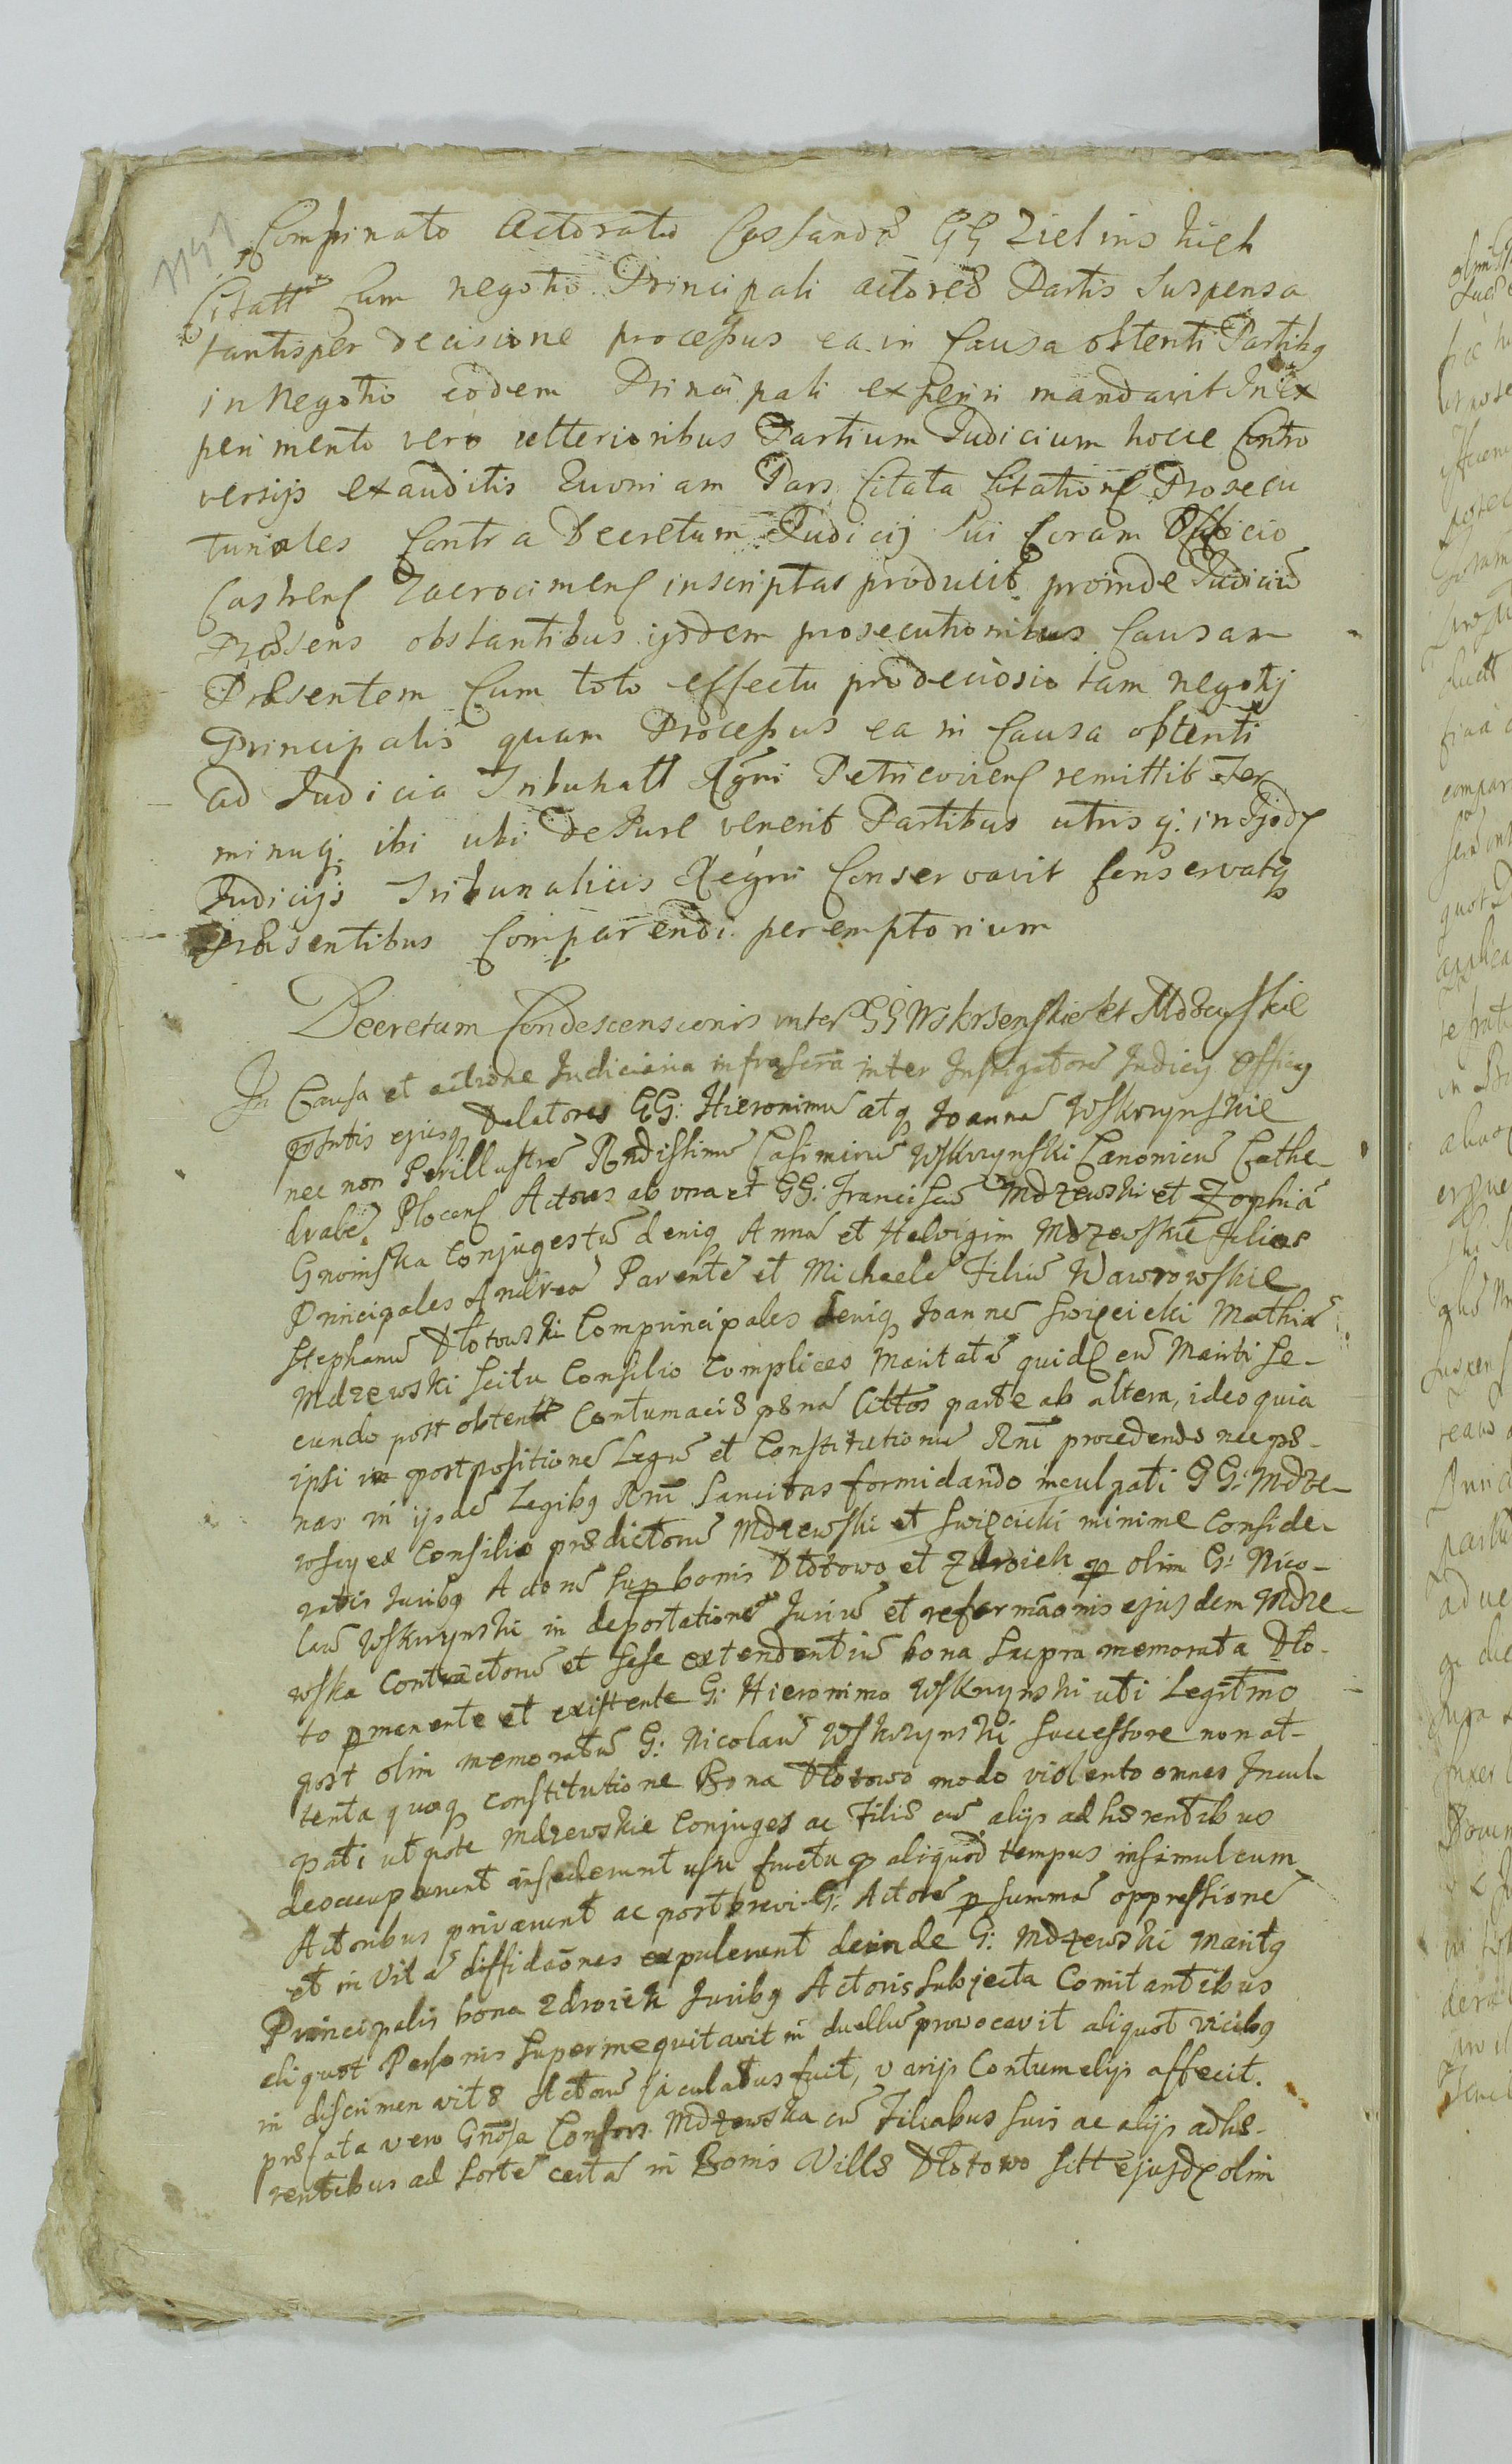 1151
Comprinato Actorato Cassandæ GG Zielinskich
Citatt Cum negotio Principali actoreæ Partis Suspensa
tantisper decisione processus ea in Causa obtenti Partibq
in Negotio eodem Principali experiri mandavit In ex
perimento vero ulterioribus Partium Judicium hocce Contro
versijs exauditis Quoniam Pars Citata Citationes Prosecu
turiales Contra Decretum Judicij sui Coram Officio
Castrens Zacrocimens inscriptas producit proinde Judiciu
Præsens obstantibus ijsdem prosecutionibus Causam
Præsentem Cum toto effectu pro decisio tam negotij
Principalis quam Processus ea in Causa obtenti
ad Judicia Tribunall Regni Petricoviens remittit Ter
minuq. ibi ubi de Jure venerit Partibus utrisq. in Ijsd
Judicijs Tribunalicijs Regni Conservavit Conservatq
Præsentibus Comparendi peremptorium
Decretum Condescensionis inter GG Wskrsenskie et Mdzewskie
In Causa et actione Judiciaria infrascra inter Instigatore Judicij Officij
prsntis ejusq Delatores GG: Hieronimu atq Joanne Wskrzynskie
nec non Perillustre Rndissimu Casimiru Wskrzynski Canonicu Cathe-
drale Plocens Actores ab una et GG: Franciscu Mdzewski et Zophia
Gnoinska Conjuges tu deniq Anna et Helvigim Mdzewskie Filias
Principales Andrea Parente et Michaele Filiu Wawrowskie
Stephanu Dłotowski Comprincipales deniq Joanne Swięcicki Mathia
Mdzewski scitu Consilio Complices Maritata quid cu Mariti se-
cundo post obtentt Contumaciæ pæna Cittos parte ab altera, ideo quia
ipsi in postpositione Legu et Constitutionu Rni procedendo nec pæ-
nas in ijsde Legibq Rni Sancitas formidando inculpati GG: Mdze-
wscy ex Consilio prædictoru Mdzewski et Swięcicki minime Conside-
ratis Juribq Actoru sup bonis Dłotowo et Zdroich p olim G: Nico-
lau Wskrzynski in deportatione Juriu et reformaonis ejusdem Mdze-
wska Contractoru et sese extendentiu bona supra memorata Dło-
to pmanente et existente G: Hieronimo Wskrzynski uti Legitmo
post olim memoratu G: Nicolau Wskrzynski Successore non at-
tenta quoq constitutione Bona Dłotowo modo violento omnes Incul-
pati utpote Mdzewskie Conjuges ac Filiæ cu alijs adhærentibus
deoccuparunt insederunt usu fructu p aliquod tempus insimul cum
Actoribus privarunt ac post brevi G: Actore p summa oppressione
et in Vita diffidaones expulerunt deinde G: Mdzewski Maritq
Principalis bona Zdroich Juribq Actoris Subjecta Comitantibus
eliquot Personis Superinequitavit in duellu provocavit aliquot vicibq
in discrimen vitæ Actore jaculatus fuit, varijs Contumelijs affecit.
præfata vero Gnosa Consors Mdzewska cu Filiabus suis ac alijs adhæ-
rentibus ad Sorte certa in Bonis Villæ Dłotowo sitt ejusd olim